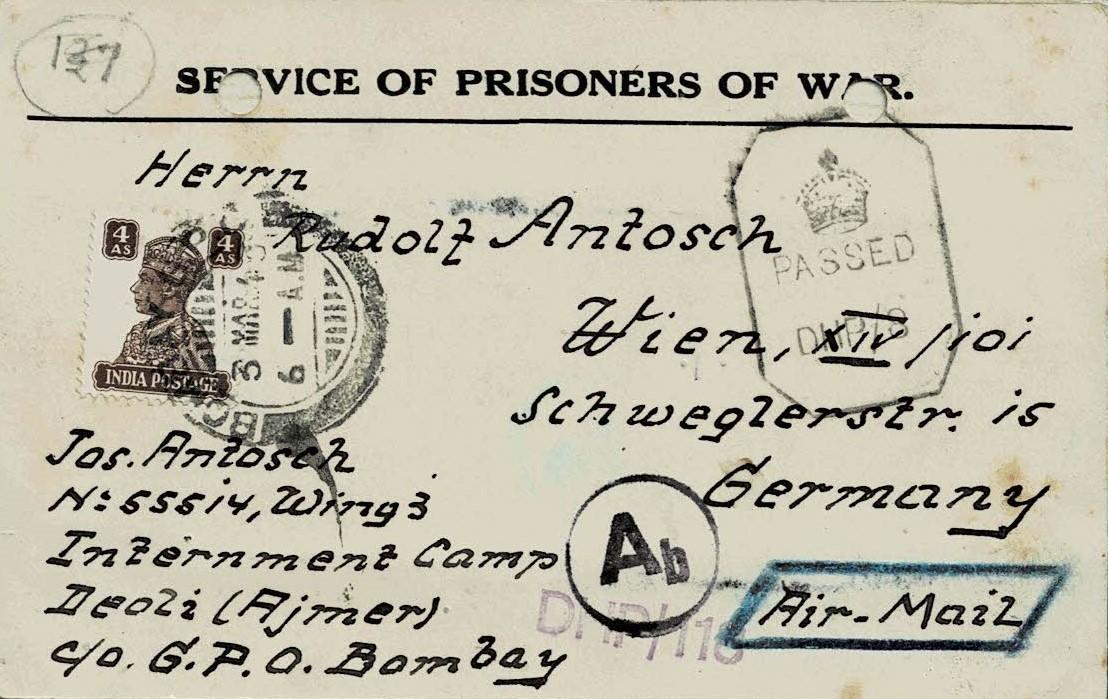 137
SERVICE OF PRISONERS OF WAR.
Herrn
Rudolf Antosch
Wien, XIV/101
Schweglerstr. 15
Germany
Air-Mail
4 AS
4 AS
INDIA POSTAGE
3 MAR. 43
6 — A.M.
BO
PASSED
DHP/8
Jos. Antosch
No: 55514, Wing 3
Internment Camp
Deoli (Ajmer)
c/o. G.P.O. Bombay
Ab
DHP/118